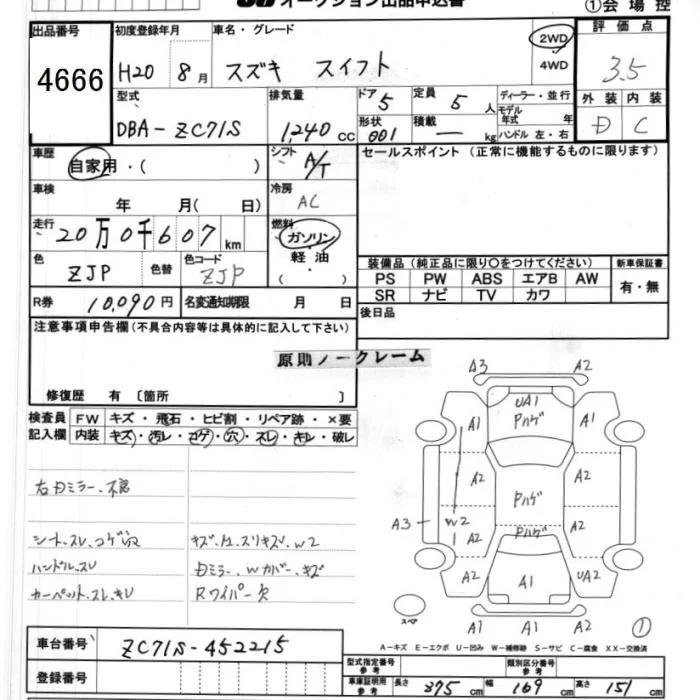 オークション出品申込書
①会場控
出品番号 4666
初度登録年月 H20 8月
車名・グレード スズキ スイフト
2WD
4WD
評価点 3.5
外装 内装
D C
型式 DBA-ZC71S
排気量 1,240 cc
ドア 5
定員 5人
形状 001
積載 — kg
ディーラー・並行
モデル年式 年
ハンドル 左・右
車歴 自家用・( )
シフト A/T
セールスポイント (正常に機能するものに限ります)
車検 年 月( 日)
冷房 AC
走行 20万0千607km
燃料 ガソリン・軽油・( )
色 ZJP 色替
色コード ZJP
装備品(純正品に限り○をつけてください)
新車保証書
PS PW ABS エアB AW
有・無
SR ナビ TV カワ
R券 10,090円
名変通知期限 月 日
後日品
注意事項申告欄(不具合内容等は具体的に記入して下さい)
原則ノークレーム
修復歴 有 〔箇所 〕
検査員記入欄
FW キズ・飛石・ヒビ割・リペア跡・×要
内装 キズ・汚レ・コゲ・穴・スレ・キレ・破レ
右Dミラー、不良
シート、スレ、コゲ穴
キズ・凹、スリキズ、W2
ハンドル、スレ
Dミラー、Wカバー、キズ
カーペット、スレ、キレ
Rワイパー欠
A3 A2
UA1
Pハゲ
A1 A1
A2 A2
Pハゲ
A3 W2 A2 A2
Pハゲ
A2 A1 UA2
A2 A1 A1 A2
スペア
①
A-キズ E-エクボ U-凹み W-補修跡 S-サビ C-腐食 XX-交換済
車台番号 ZC71S-452215
登録番号
型式指定番号 参考
類別区分番号 参考
車庫証明用 参考 長さ 375cm 幅 169cm 高さ 151cm